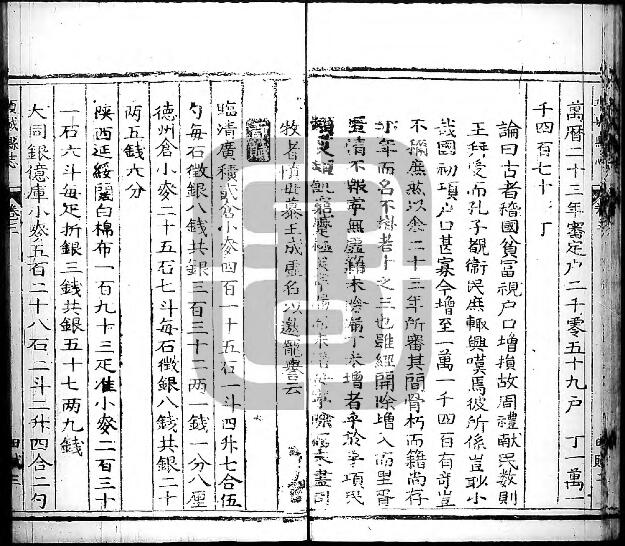 萬曆二十三年審定户二千零五十九户 丁一萬
千四百七十丁
論曰古者稽國貧富視户口增損故周禮獻民數則
王拜受而孔子觀衛民庶輒興嘆焉彼所係豈耿小
哉國初項户口甚寡今增至一萬一千四百有奇豈
不稱庶然以余二十三年所審其間骨朽而籍尚存
年而名不掛者十之三也雖經開除增入而里胥
匿情不寧無虛籍未除漏丁未增者乎於乎項民
窮極
牧者慎毋慕王成虛名以邀寵譽云
臨清廣積倉小麥四百一十五石一斗四升七合伍
勺每石徵銀八錢共銀三百三十二兩一錢一分八厘
德州倉小麥二十五石七斗每石徵銀八錢共銀二十
兩五錢六分
陝西延綏闊白棉布一百九十三疋准小麥二百三十
一石六斗每疋折銀三錢共銀五十七兩九錢
大同銀億庫小麥五百二十八石二斗二升四合二勺
項城縣志
卷三
田賦三